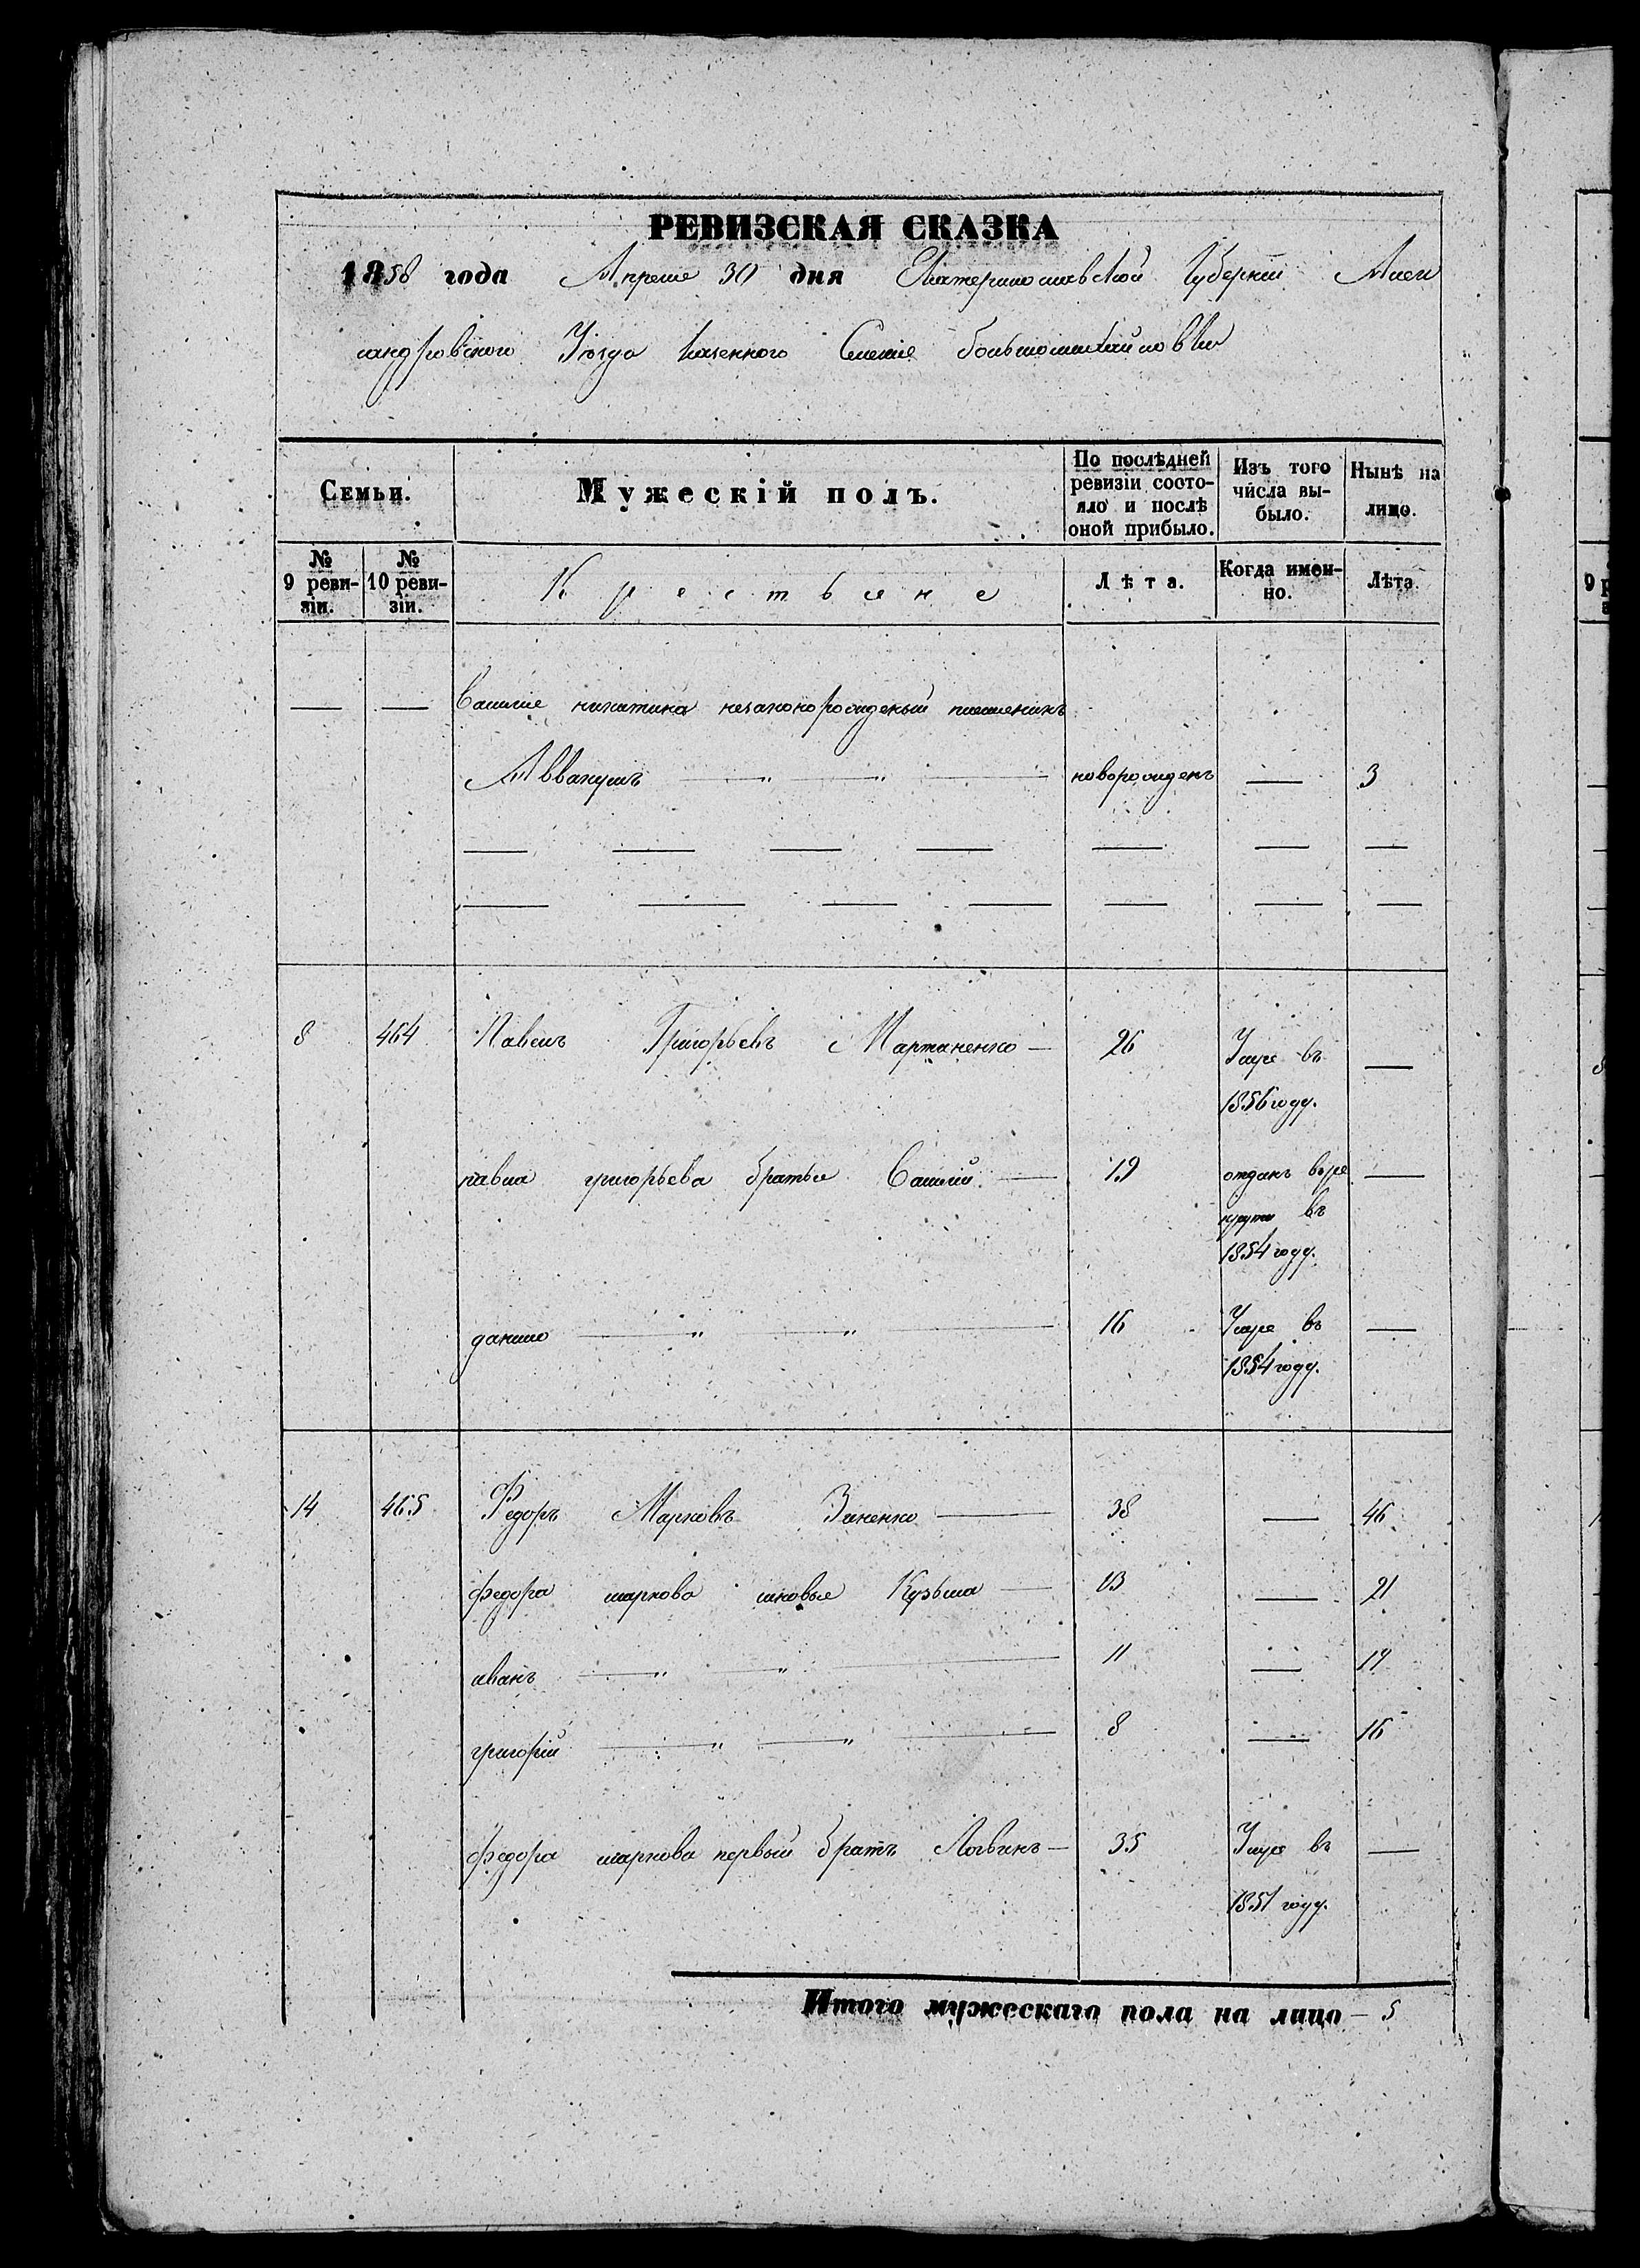 РЕВИЗСКАЯ СКАЗКА
1858 года Апреля 30 дня Екатеринославской Губернии Алек
сандровского Уезда казенного Селения большомихайловки
Семьи. Мужескій полъ. По послѣдней ревизіи состояло и послѣ оной прибыло. Изъ того числа выбыло. Нынѣ на лицо.
№ 9 ревизіи. № 10 ревизіи. Крестьяне Лѣта. Когда именно. Лѣта.
— — Василия никитина незаконорожденый племеникъ
Аввакумъ — " — " — новорожденъ — 3
— — — — — — —
— — — — — — —
8 464 Павелъ Григорьевъ Мартиненко — 26 Умре въ —
1856 году.
павла григорьева братья Василий — 19 отданъ въре —
круты въ
1854 году.
данило — " — " — 16 Умре въ —
1854 году.
14 465 Федоръ Марковъ Зиненко — 38 — 46
федора маркова сыновья Кузьма — 13 — 21
иванъ — " — " — 11 — 19
григорій — " — " — 8 — 16
федора маркова первый братъ Логвинъ — 35 Умре въ —
1851 году.
Итого мужескаго пола на лицо — 5
9 р